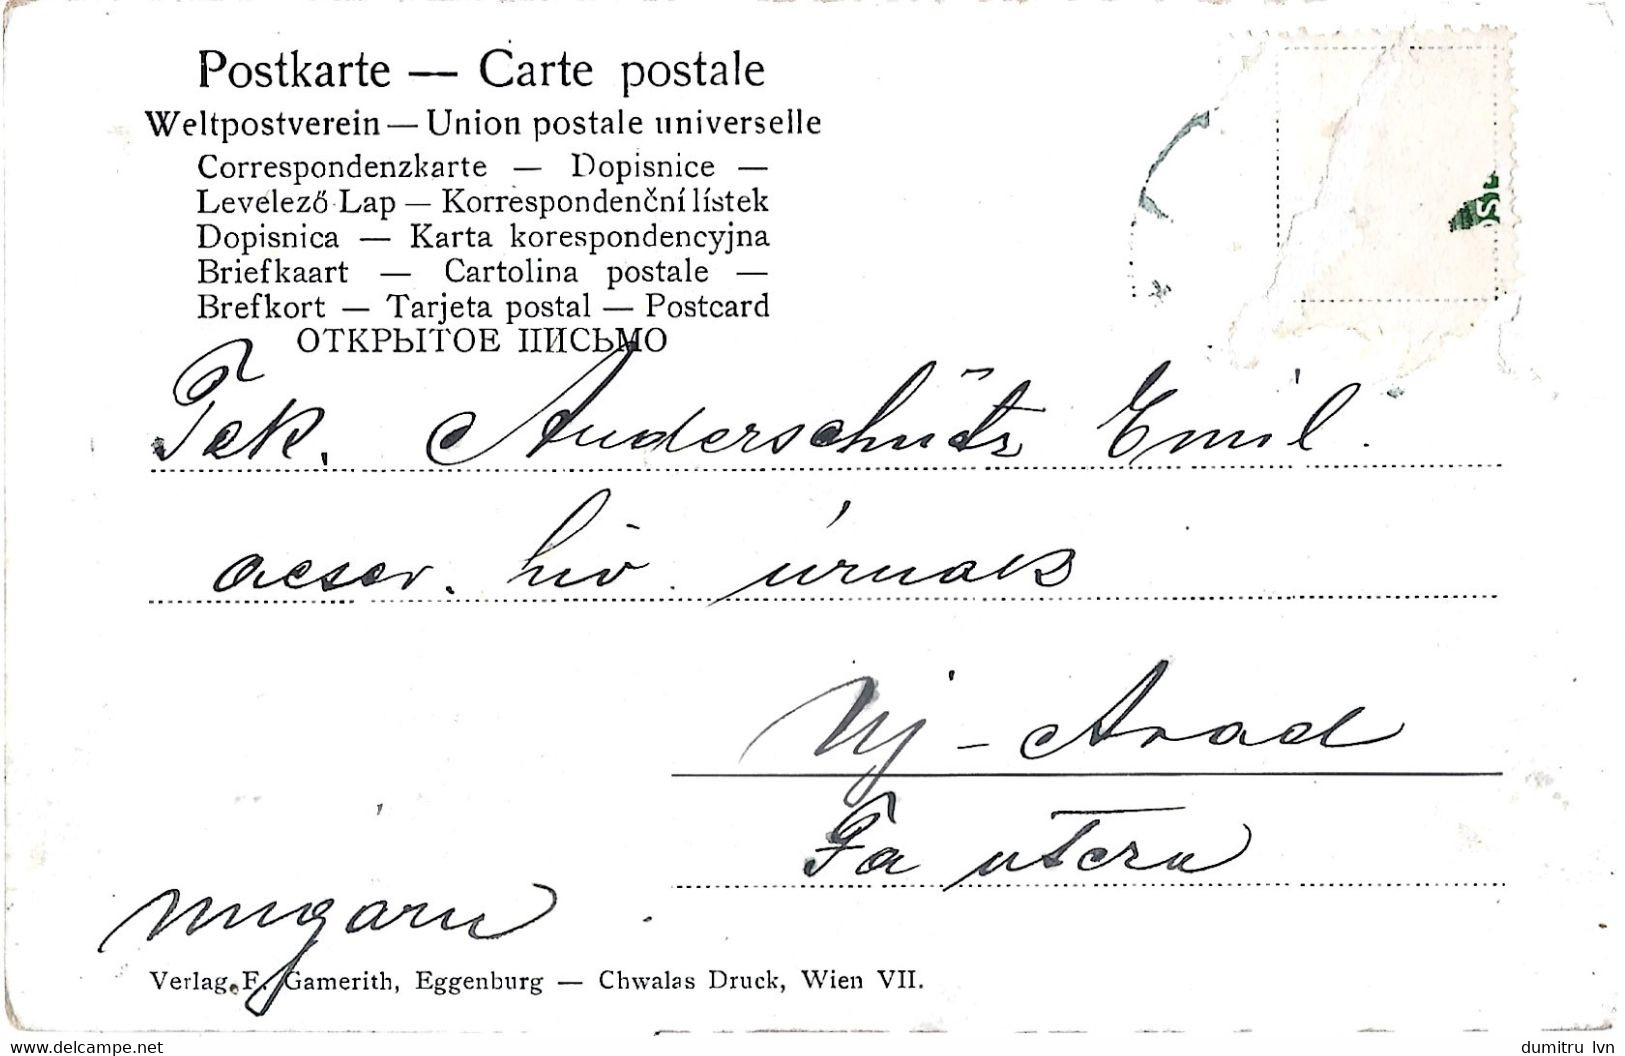 Postkarte — Carte postale
Weltpostverein — Union postale universelle
Correspondenzkarte — Dopisnice —
Levelező Lap — Korrespondenční lístek
Dopisnica — Karta korespondencyjna
Briefkaart — Cartolina postale —
Brefkort — Tarjeta postal — Postcard
ОТКРЫТОЕ ПИСЬМО
Tek. Anderschütz Emil
hiv. úrnak
Uj-Arad
Fö utcza
Ungarn
Verlag F. Gamerith, Eggenburg — Chwalas Druck, Wien VII.
www.delcampe.net
dumitru_lvn